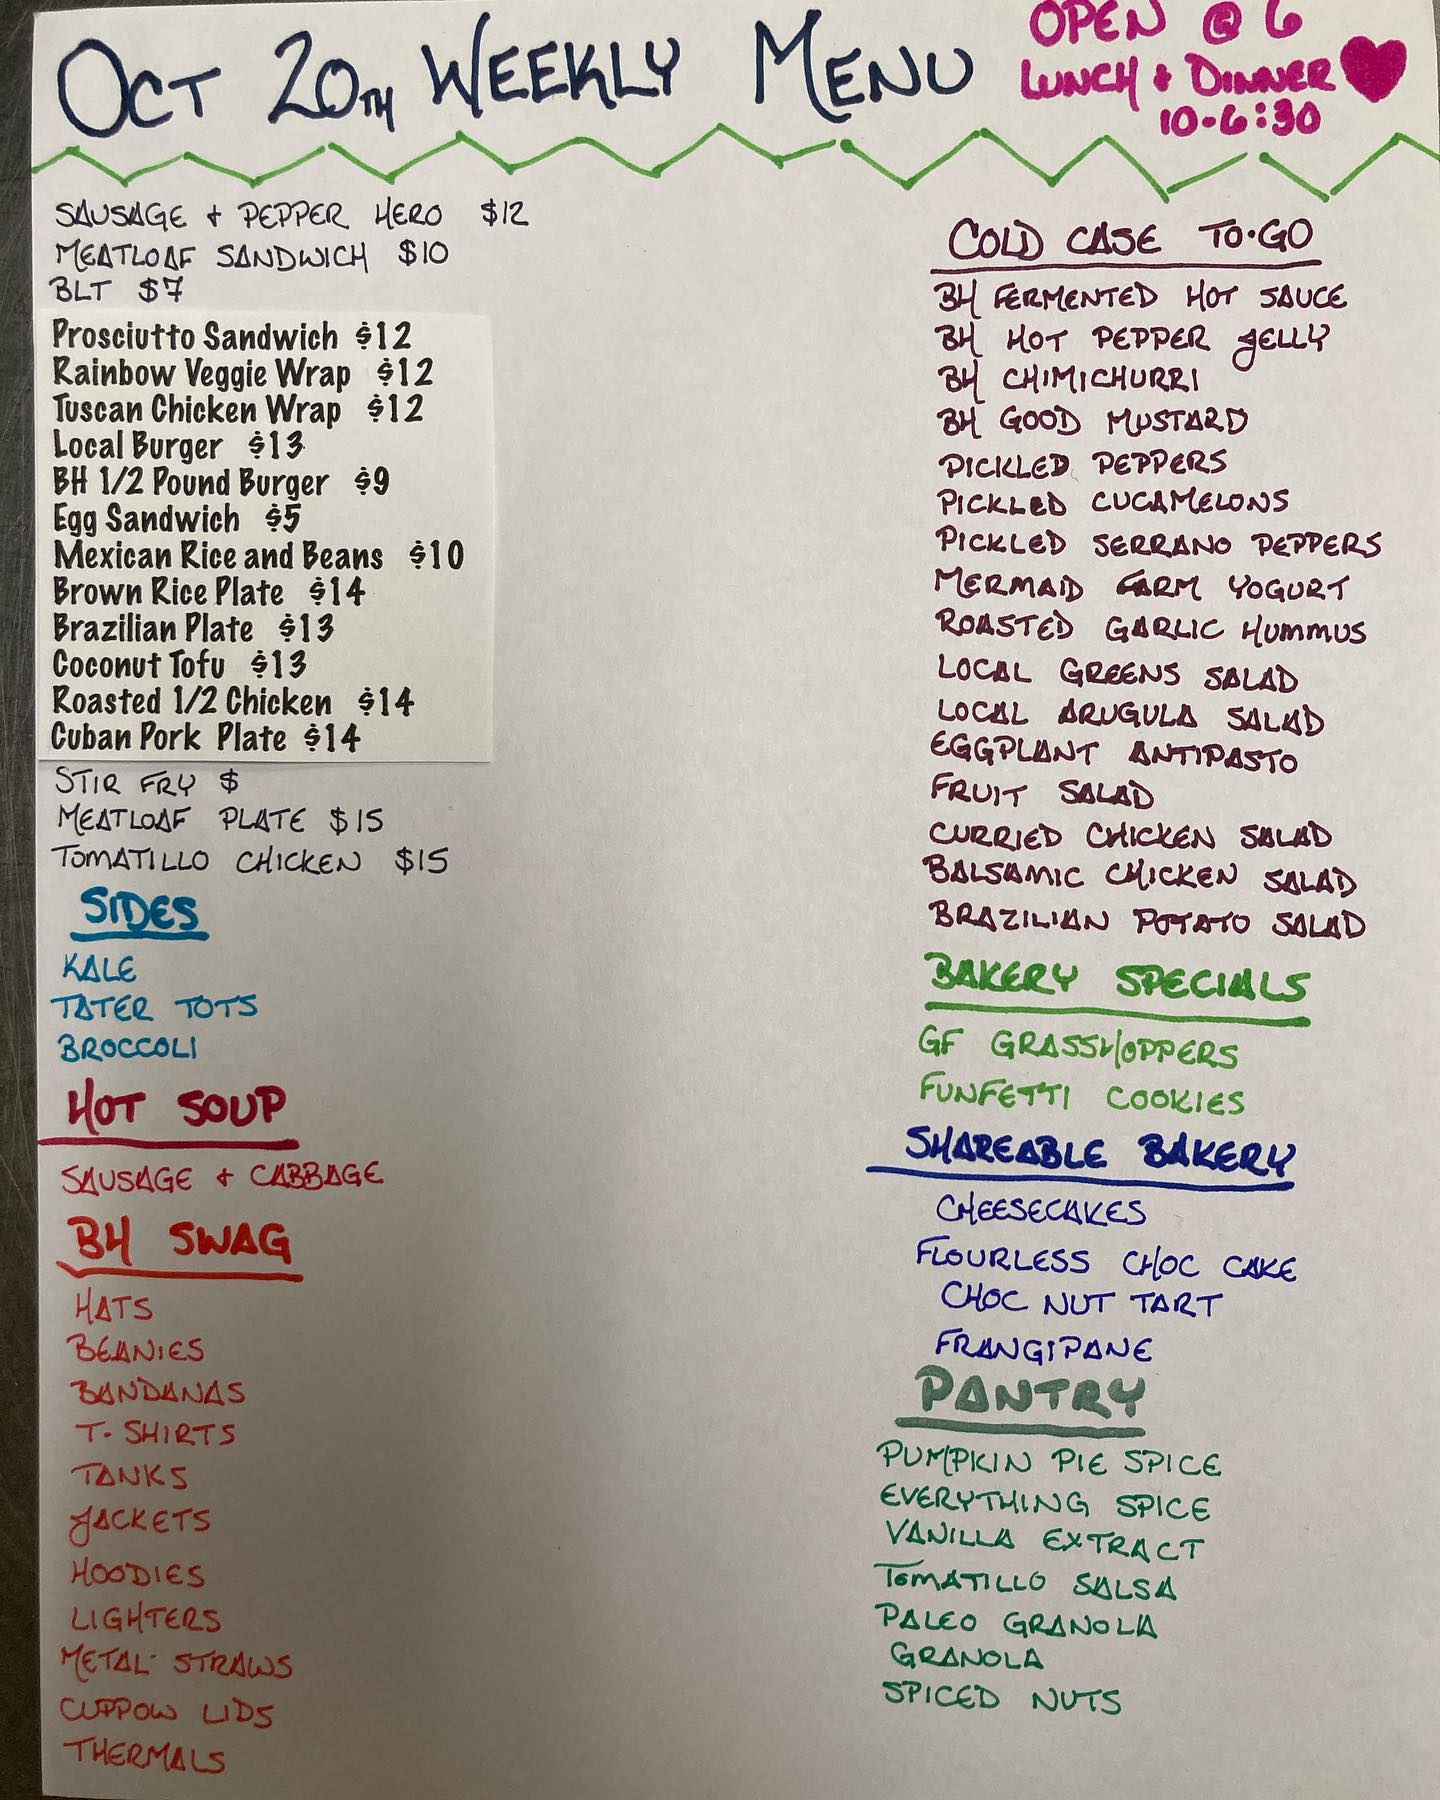 OCT 20TH WEEKLY MENU
OPEN @ 6
LUNCH + DINNER
10-6:30
SAUSAGE + PEPPER HERO $12
MEATLOAF SANDWICH $10
BLT $7
Prosciutto Sandwich $12
Rainbow Veggie Wrap $12
Tuscan Chicken Wrap $12
Local Burger $13
BH 1/2 Pound Burger $9
Egg Sandwich $5
Mexican Rice and Beans $10
Brown Rice Plate $14
Brazilian Plate $13
Coconut Tofu $13
Roasted 1/2 Chicken $14
Cuban Pork Plate $14
STIR FRY $
MEATLOAF PLATE $15
TOMATILLO CHICKEN $15
SIDES
KALE
TATER TOTS
BROCCOLI
HOT SOUP
SAUSAGE + CABBAGE
BH SWAG
HATS
BEANIES
BANDANAS
T-SHIRTS
TANKS
JACKETS
HOODIES
LIGHTERS
METAL STRAWS
CUPPOW LIDS
THERMALS
COLD CASE TO-GO
BH FERMENTED HOT SAUCE
BH HOT PEPPER JELLY
BH CHIMICHURRI
BH GOOD MUSTARD
PICKLED PEPPERS
PICKLED CUCAMELONS
PICKLED SERRANO PEPPERS
MERMAID FARM YOGURT
ROASTED GARLIC HUMMUS
LOCAL GREENS SALAD
LOCAL ARUGULA SALAD
EGGPLANT ANTIPASTO
FRUIT SALAD
CURRIED CHICKEN SALAD
BALSAMIC CHICKEN SALAD
BRAZILIAN POTATO SALAD
BAKERY SPECIALS
GF GRASSHOPPERS
FUNFETTI COOKIES
SHAREABLE BAKERY
CHEESECAKES
FLOURLESS CHOC CAKE
CHOC NUT TART
FRANGIPANE
PANTRY
PUMPKIN PIE SPICE
EVERYTHING SPICE
VANILLA EXTRACT
TOMATILLO SALSA
PALEO GRANOLA
GRANOLA
SPICED NUTS